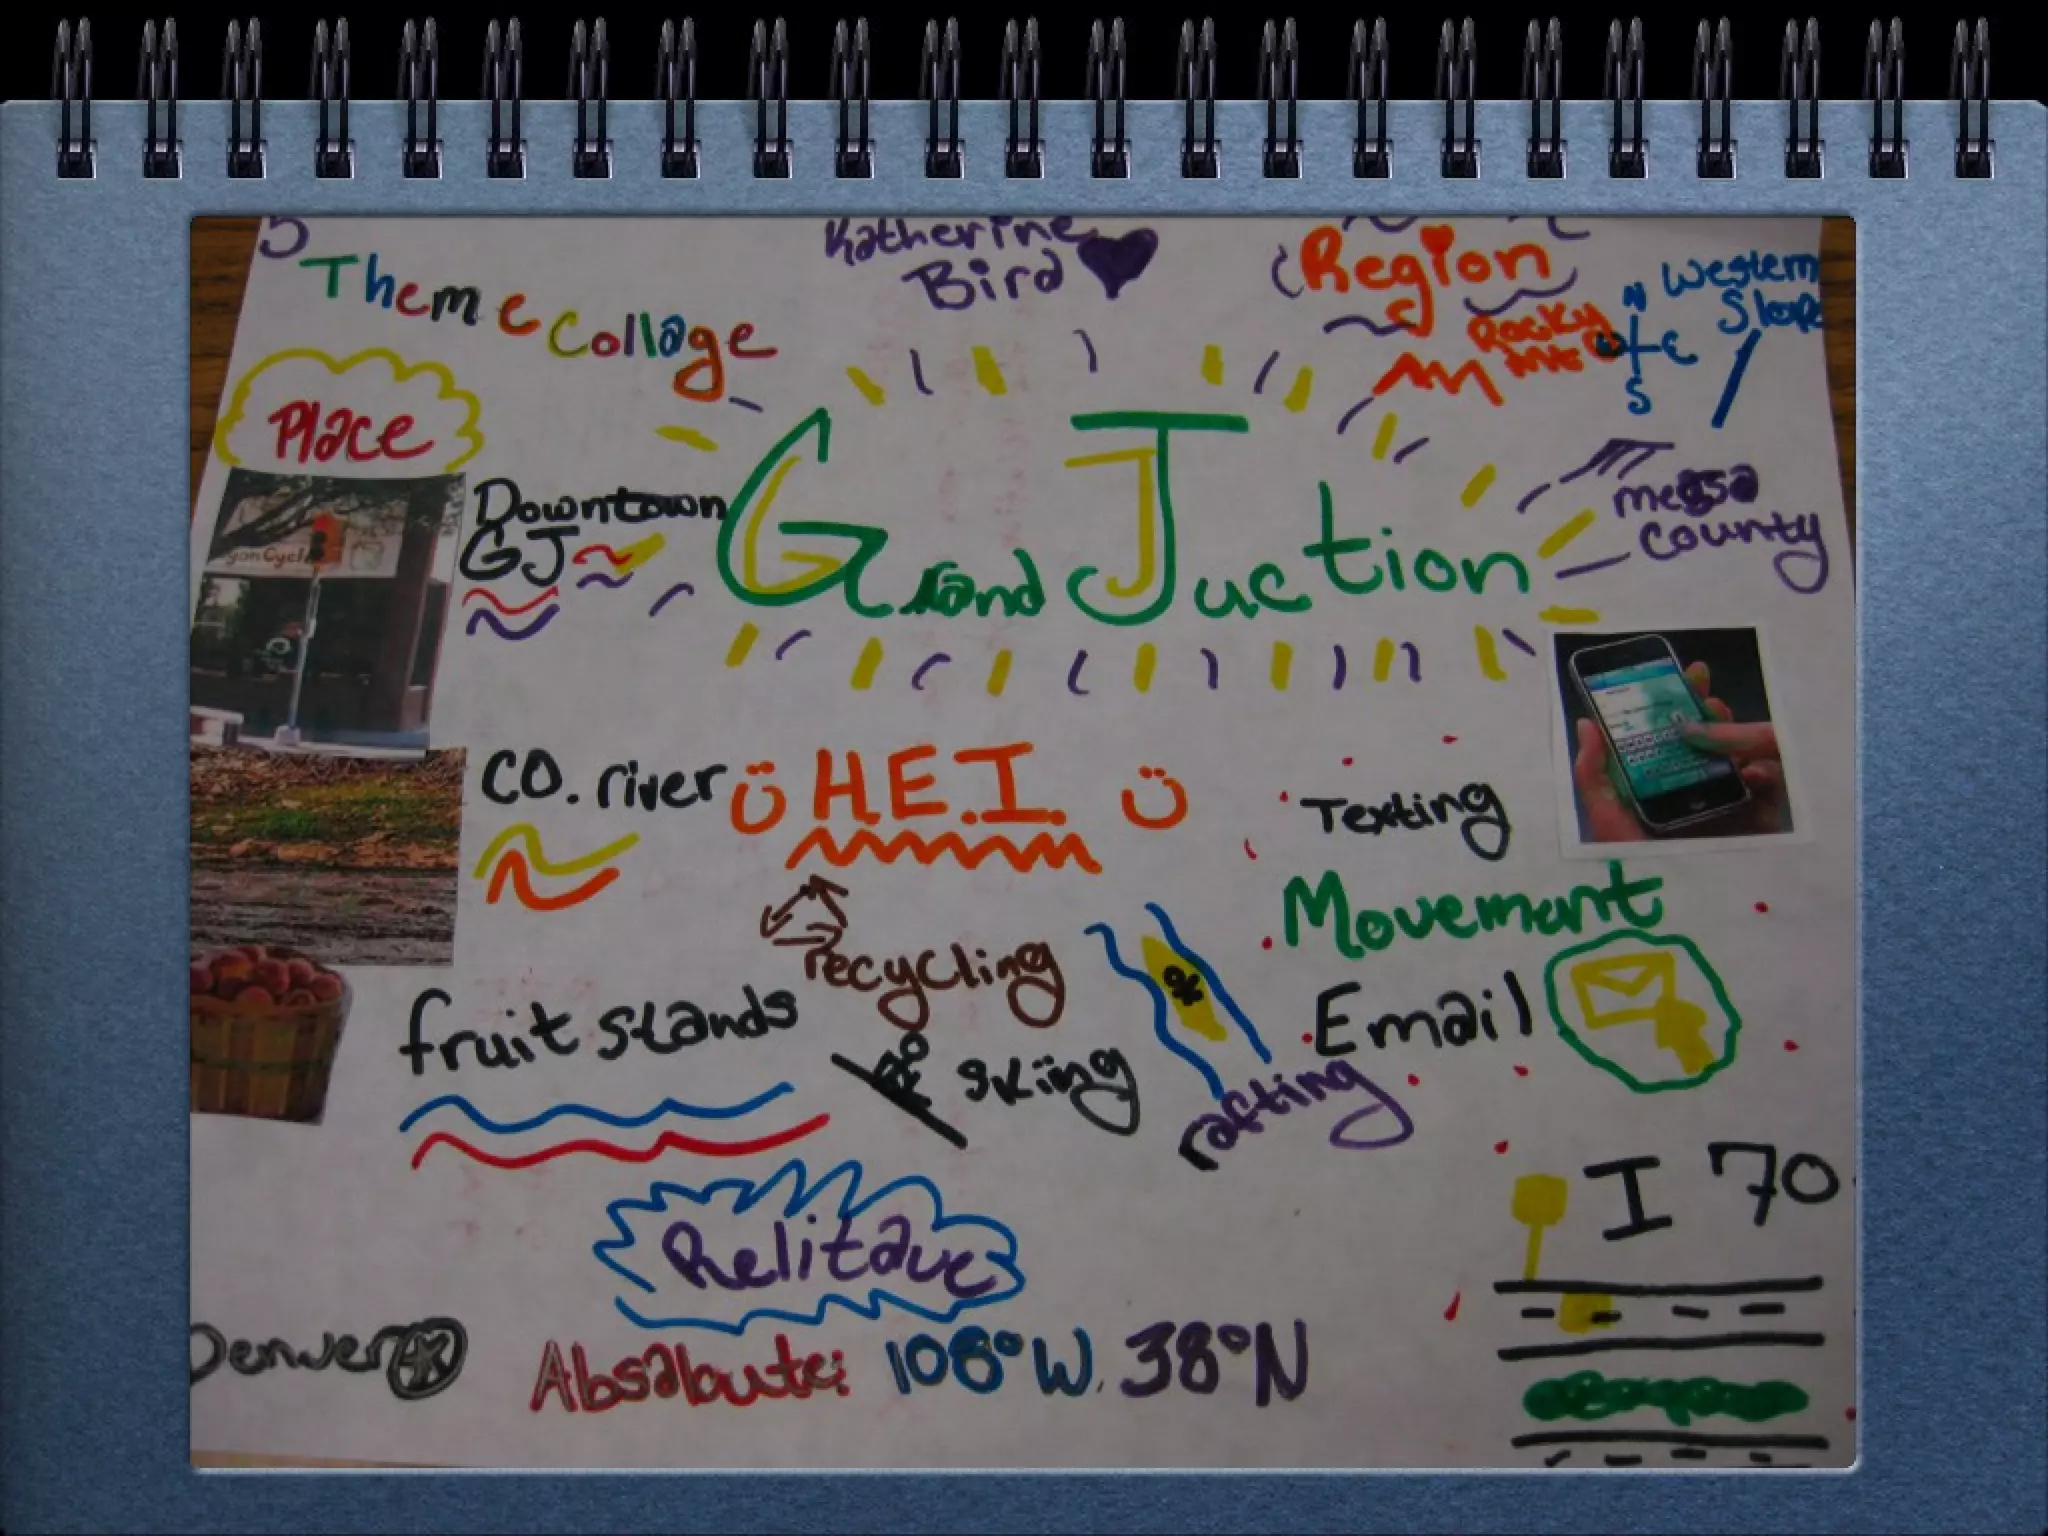 5
Theme Collage
Katherine
Bird
Region
Rocky
Mts
N
E
S
Western
Slope
Place
Downtown
GJ
Grand Juction
Messa
County
CO. river
H.E.I.
Texting
recycling
Movement
fruit stands
Email
skiing
rafting
I 70
Relitave
Denver
Absalbute: 108°W, 38°N